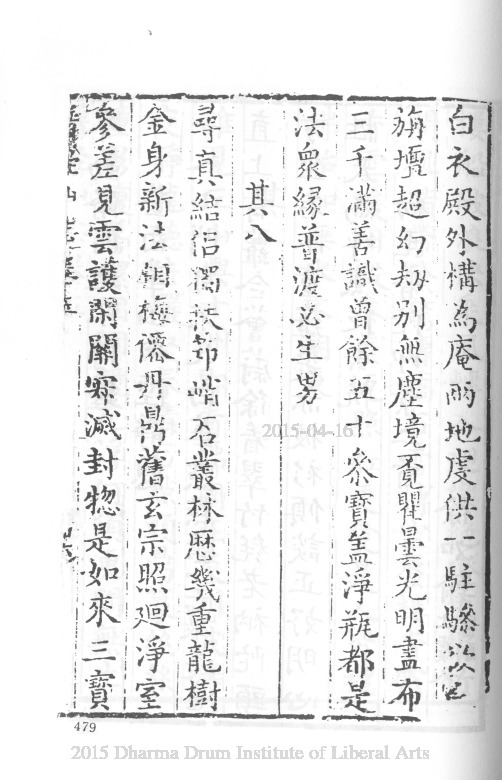 白衣殿外構為庵兩地虔供一駐驂
旃壇超幻劫別無塵境覔瞿曇光明盡布
三千滿善識曾餘五十參寶盖淨瓶都是
法衆緣普渡必生男
其八
尋真結侣獨扶笻峭石叢林歴幾重龍樹
金身新法相梅僊丹鼎舊玄宗照廻淨室
參差見雲護閑關寂滅封惣是如來三寳
2015-04-16
479
2015 Dharma Drum Institute of Liberal Arts